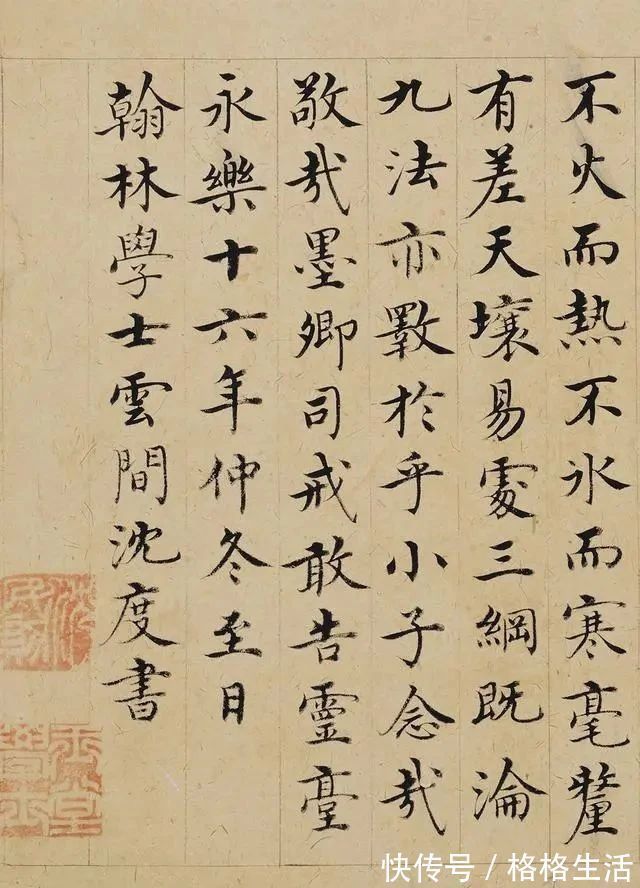 不火而熱不氷而寒毫釐
有差天壤易處三綱既淪
九法亦斁於乎小子念哉
敬哉墨卿司戒敢告靈臺
永樂十六年仲冬至日
翰林學士雲間沈度書
快传号 / 格格生活